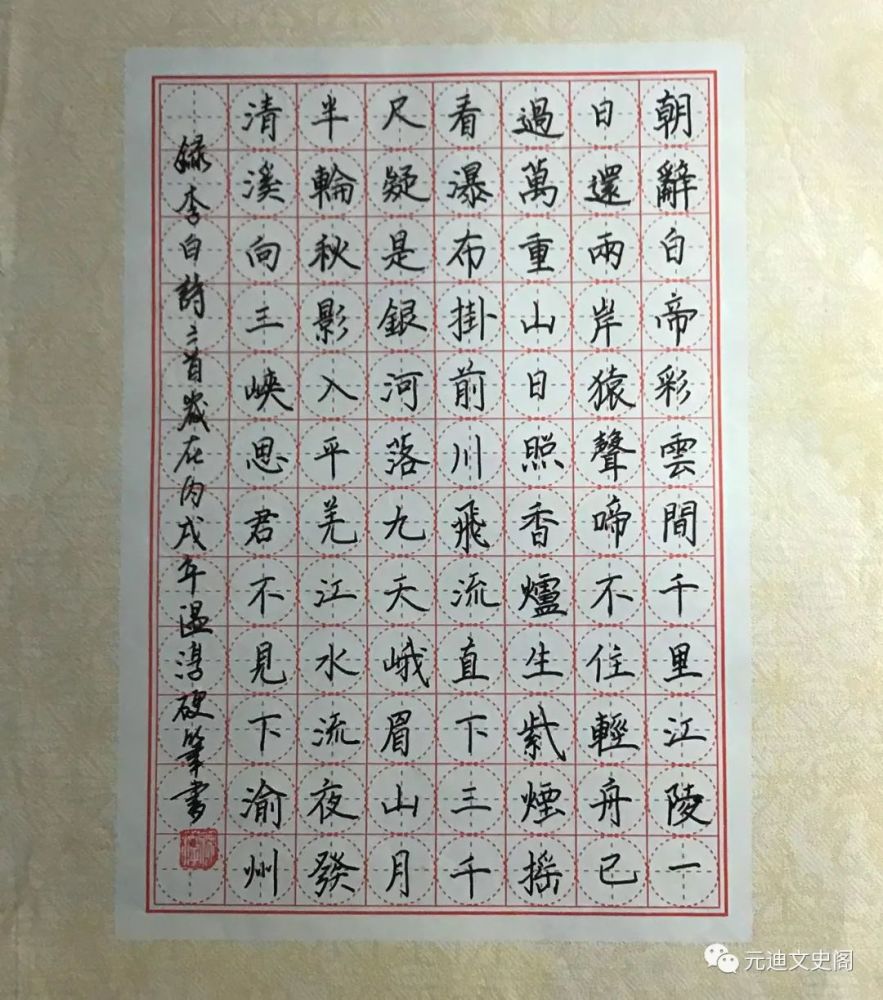 朝辭白帝彩雲間千里江陵一
日還兩岸猿聲啼不住輕舟已
過萬重山日照香爐生紫煙搖
看瀑布掛前川飛流直下三千
尺疑是銀河落九天峨眉山月
半輪秋影入平羌江水流夜發
清溪向三峽思君不見下渝州
錄李白詩三首歲在丙戌年溫淳硬筆書
元迪文史阁